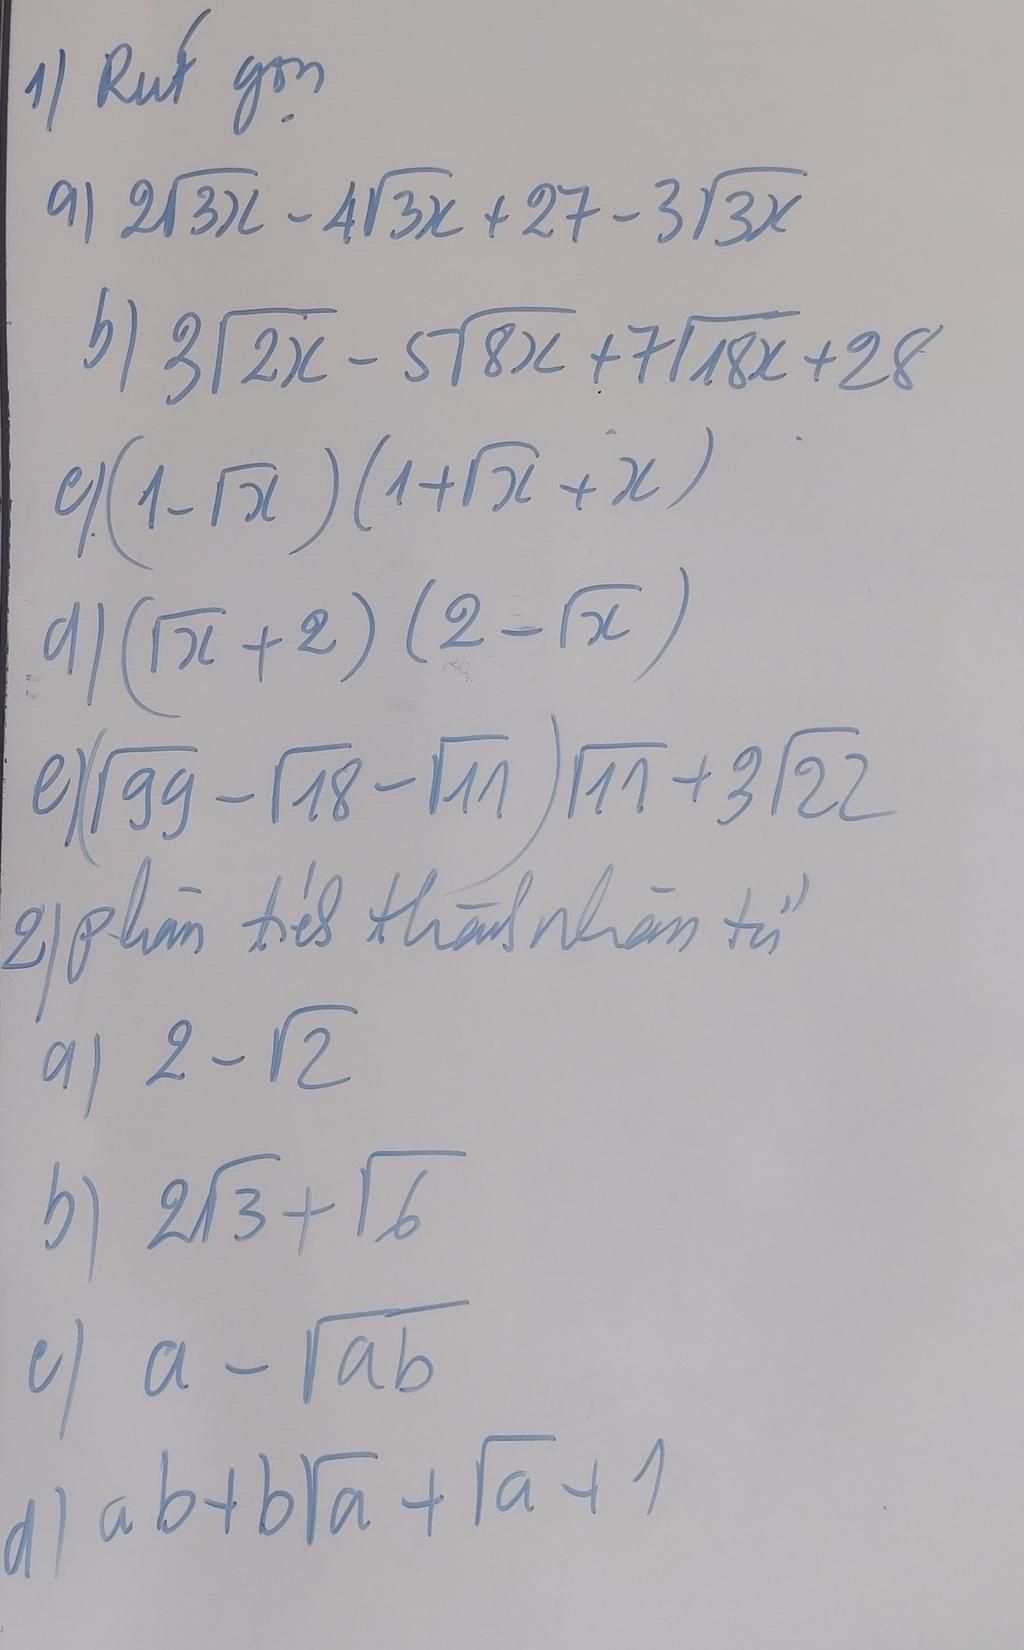 1) Rút gọn
a) 2√3x - 4√3x + 27 - 3√3x
b) 3√2x - 5√8x + 7√18x + 28
c) (1 - √x)(1 + √x + x)
d) (√x + 2)(2 - √x)
e) (√99 - √18 - √11)√11 + 3√22
2) phân tích thành nhân tử
a) 2 - √2
b) 2√3 + √6
c) a - √ab
d) ab + b√a + √a + 1